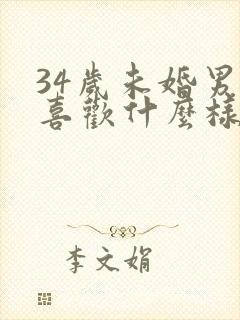 34歲未婚男
喜歡什麼樣
李文娟